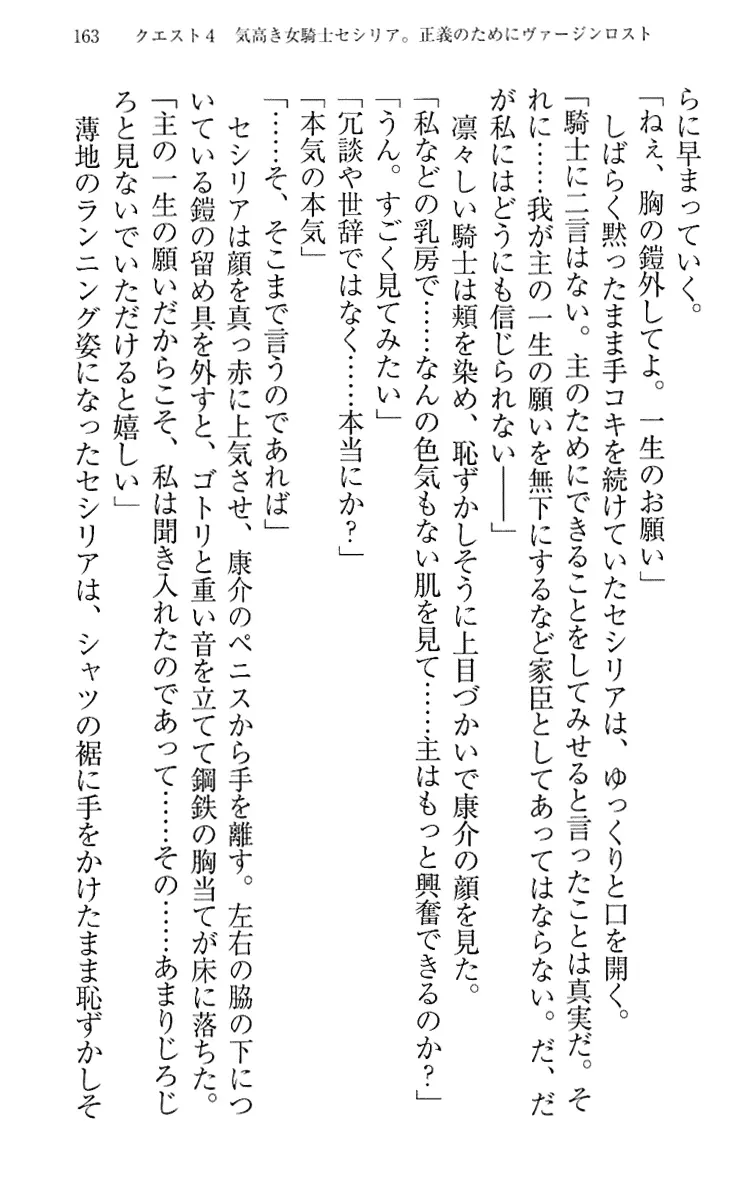 163　クエスト4　気高き女騎士セシリア。正義のためにヴァージンロスト
らに早まっていく。
「ねぇ、胸の鎧外してよ。一生のお願い」
しばらく黙ったまま手コキを続けていたセシリアは、ゆっくりと口を開く。
「騎士に二言はない。主のためにできることをしてみせると言ったことは真実だ。そ
れに……我が主の一生の願いを無下にするなど家臣としてあってはならない。だ、だ
が私にはどうにも信じられない――」
凛々しい騎士は頬を染め、恥ずかしそうに上目づかいで康介の顔を見た。
「私などの乳房で……なんの色気もない肌を見て……主はもっと興奮できるのか？」
「うん。すごく見てみたい」
「冗談や世辞ではなく……本当にか？」
「本気の本気」
「……そ、そこまで言うのであれば」
セシリアは顔を真っ赤に上気させ、康介のペニスから手を離す。左右の脇の下につ
いている鎧の留め具を外すと、ゴトリと重い音を立てて鋼鉄の胸当てが床に落ちた。
「主の一生の願いだからこそ、私は聞き入れたのであって……その……あまりじろじ
ろと見ないでいただけると嬉しい」
薄地のランニング姿になったセシリアは、シャツの裾に手をかけたまま恥ずかしそ